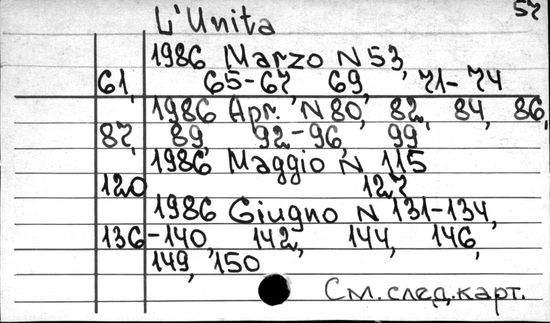 57
L'Unita
1986 Marzo N 53,
61, 65-67 69, 71-74
1986 Apr. N 80, 82, 84, 86,
87, 89, 92-96, 99
1986 Maggio N 115
120 127
1986 Giugno N 131-134,
136-140, 142, 144, 146,
149, 150
См. след. карт.